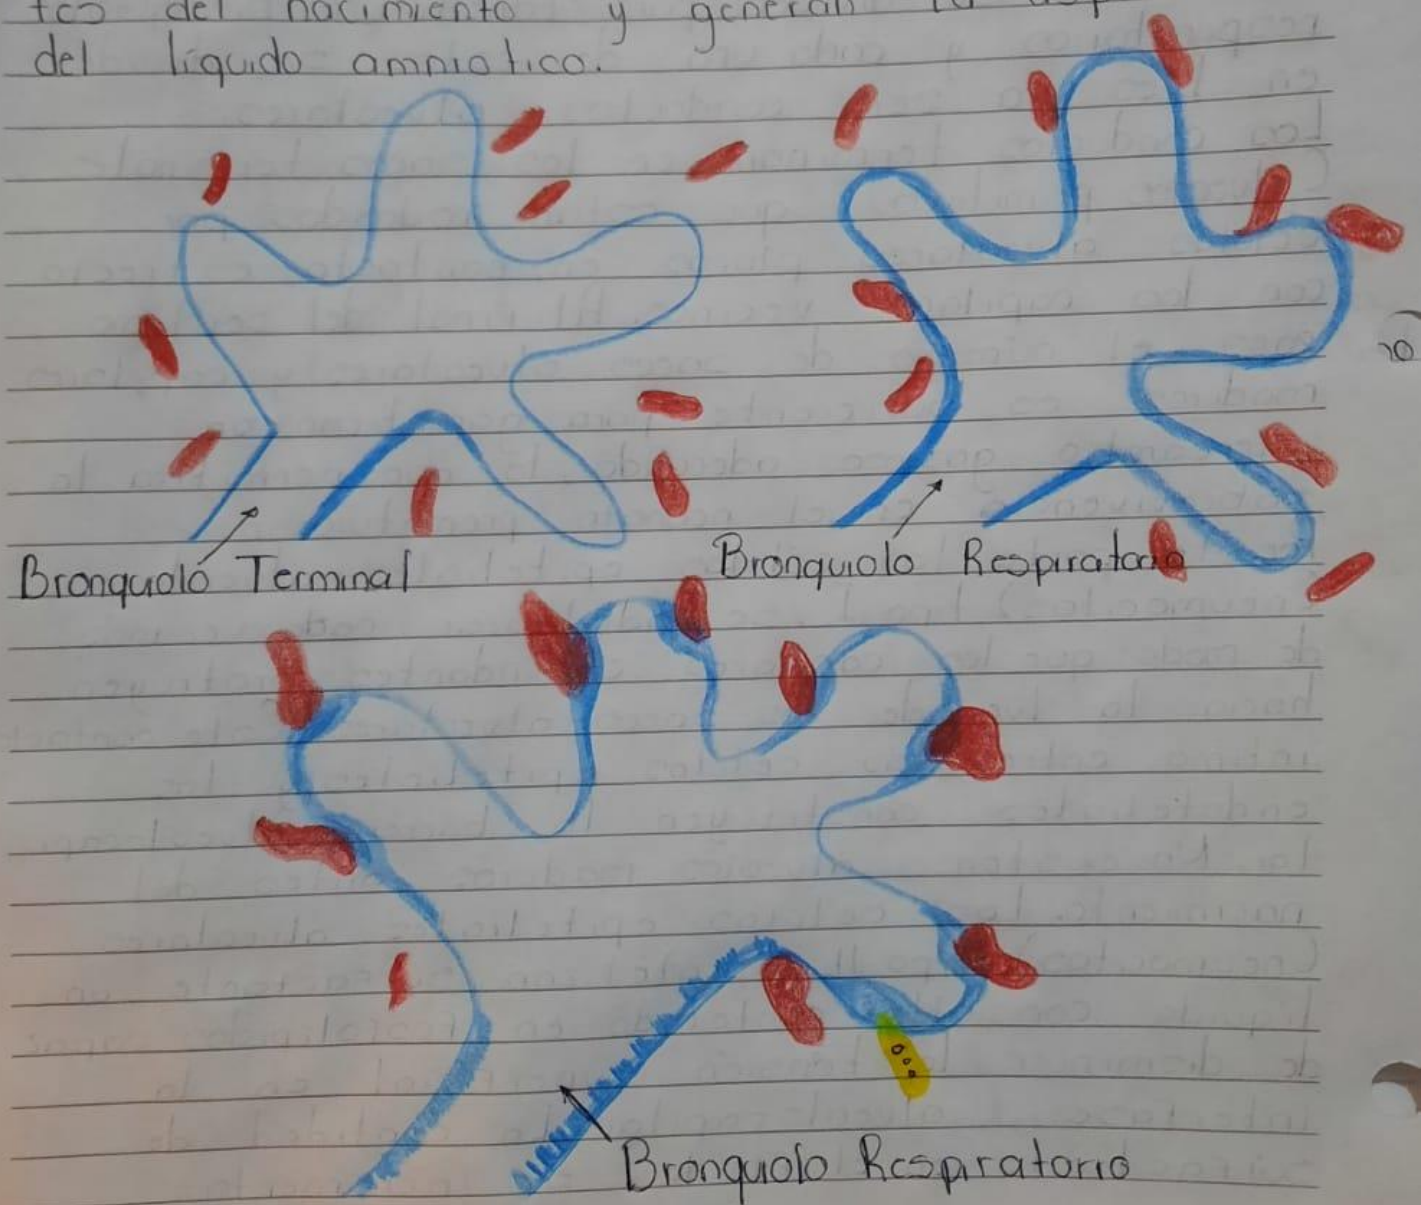 tes del nacimiento y generan la
del líquido amniotico.
Bronquolo Terminal
Bronquiolo Respiratorio
Bronquolo Respiratorio